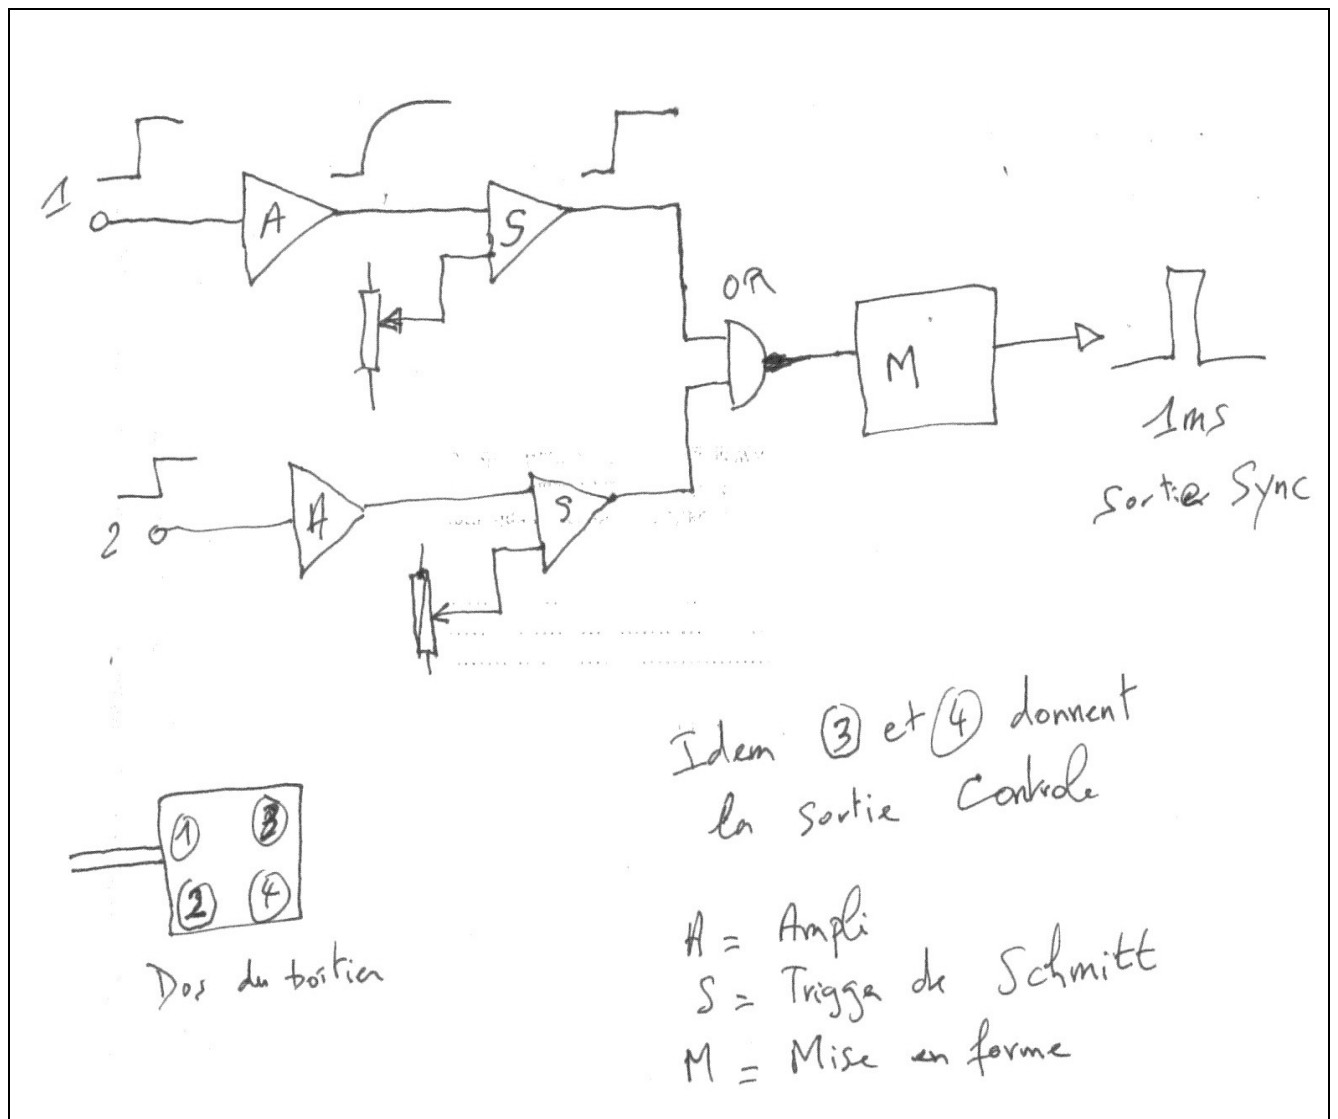 1
A
S
OR
M
1ms
Sortie Sync
2
A
S
Idem ③ et ④ donnent
la sortie Controle
① ③
② ④
Dos du boîtier
A = Ampli
S = Trigger de Schmitt
M = Mise en forme